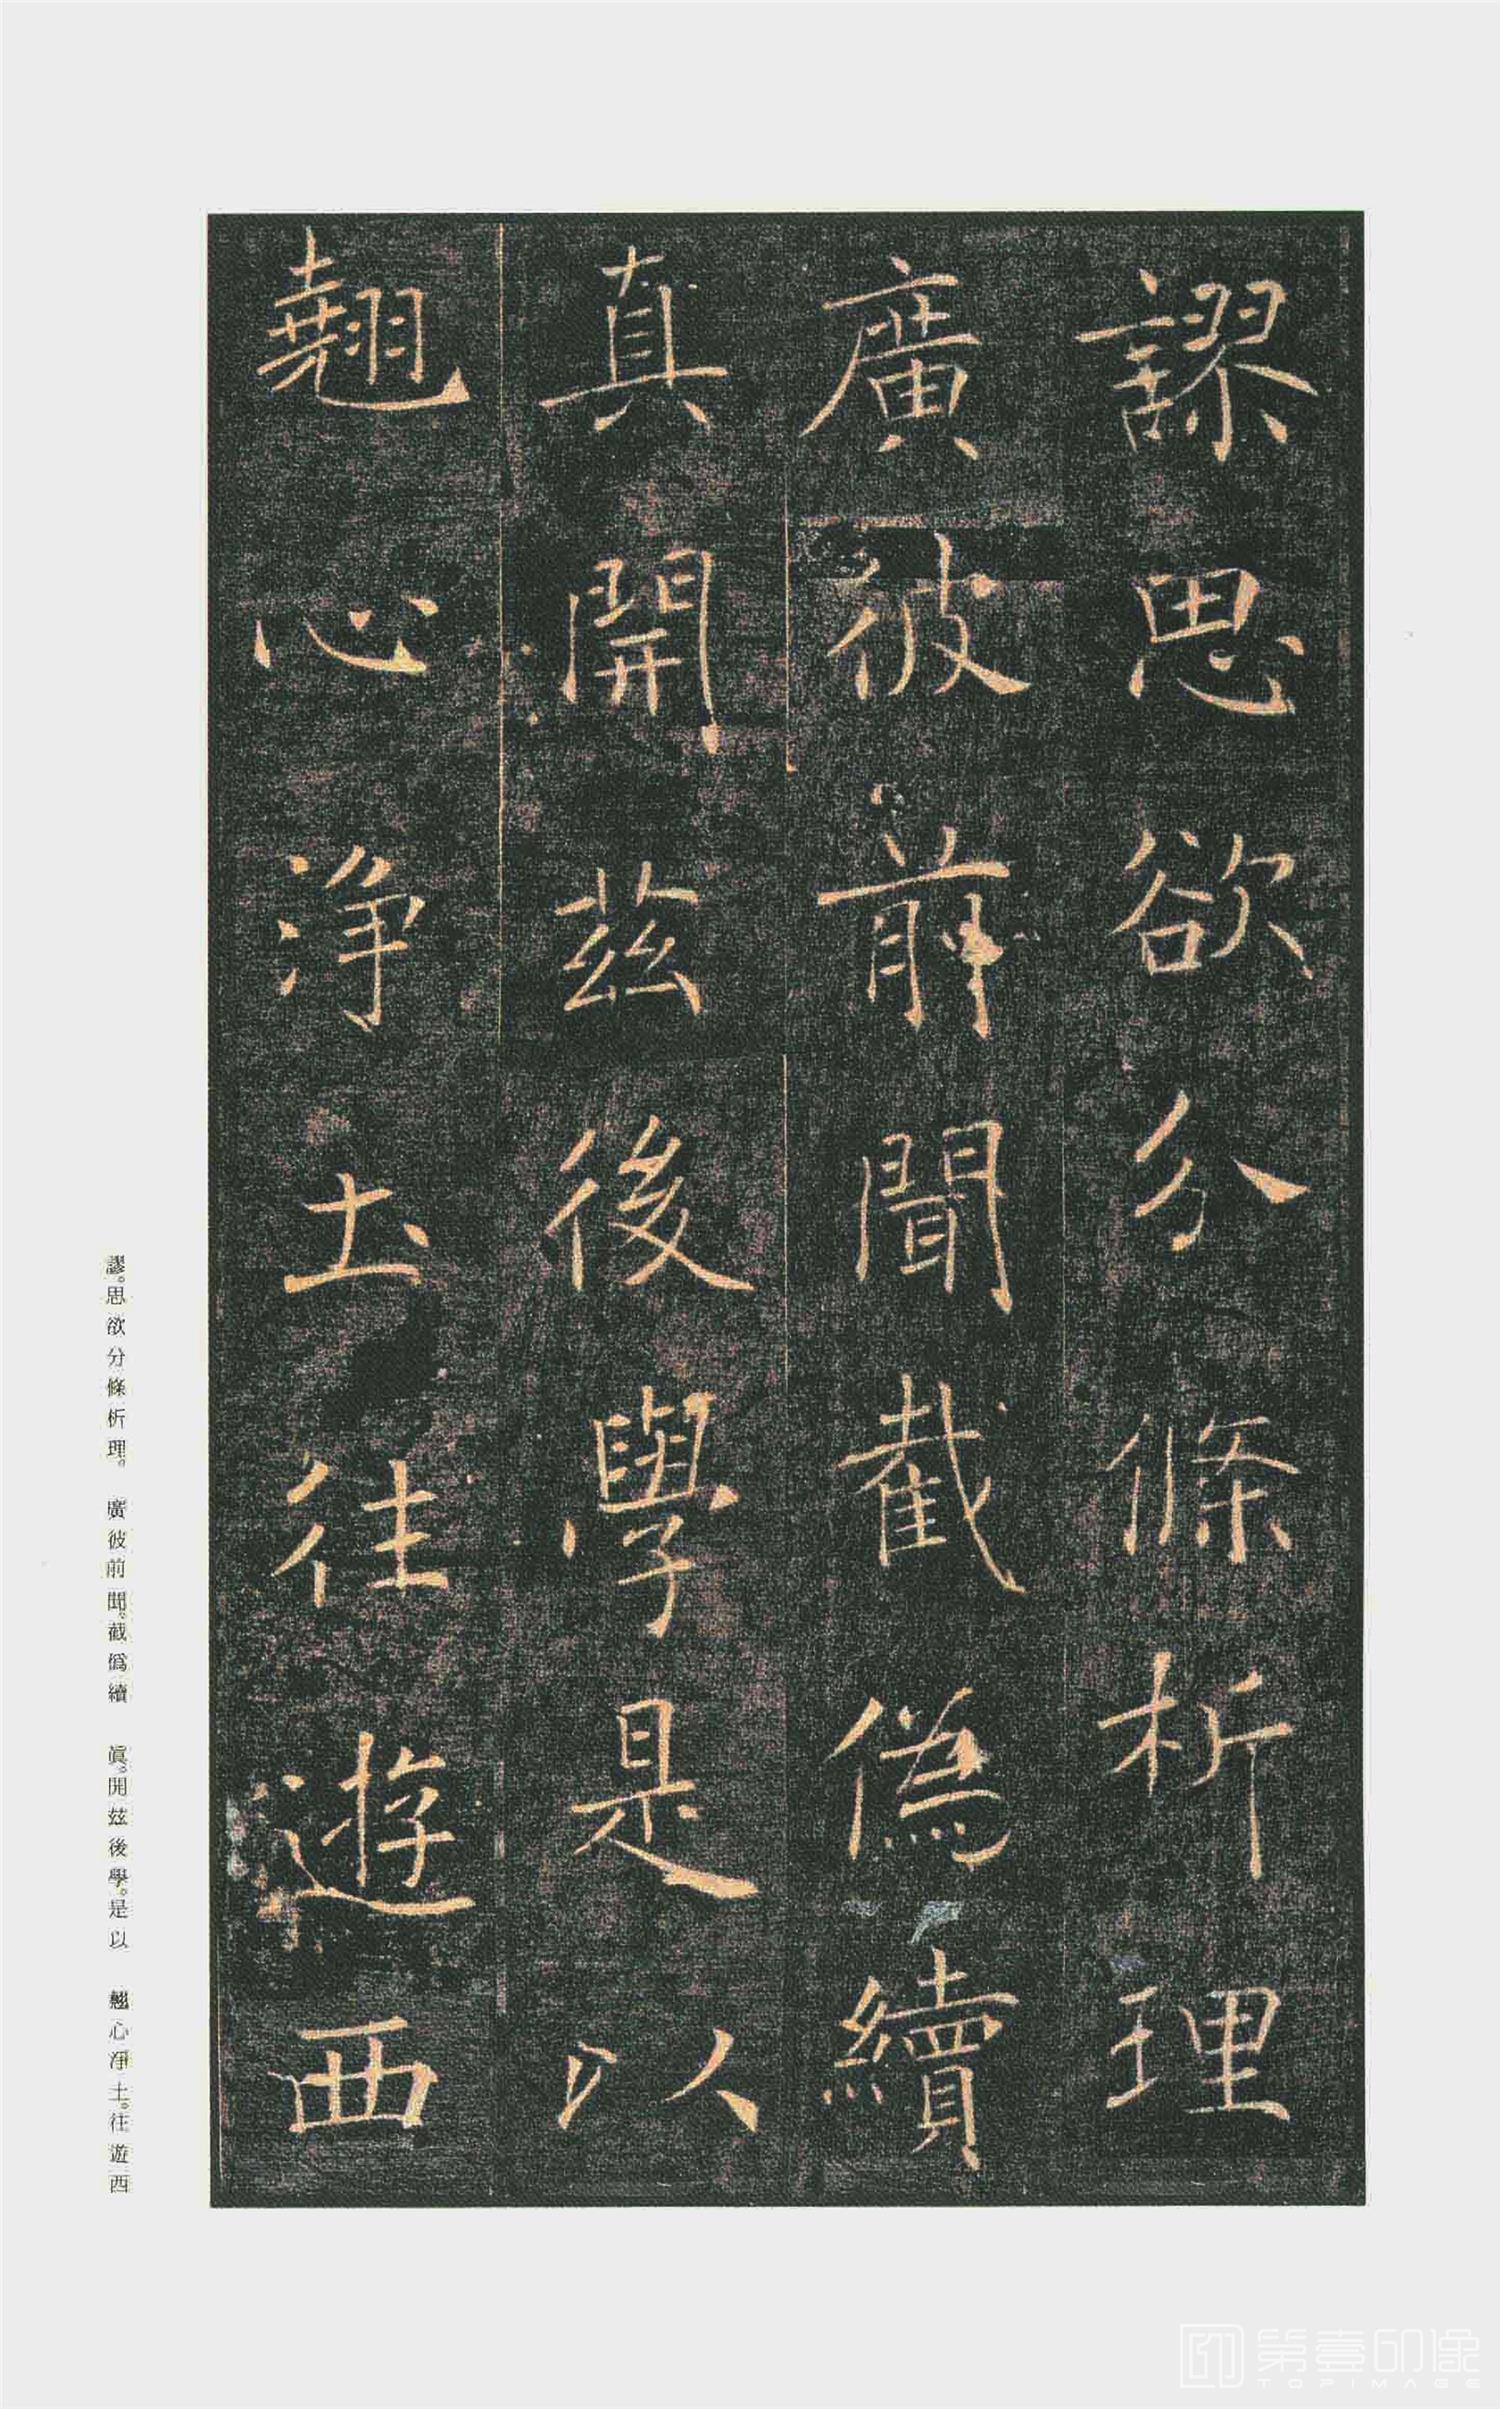 謬思欲分條析理
廣彼前聞截偽續
真開茲後學是以
翹心淨土往遊西
謬。思欲分條析理。 廣彼前聞。截僞續 眞。開茲後學。是以 翹心淨土。往遊西
第壹印像
TOPIMAGE